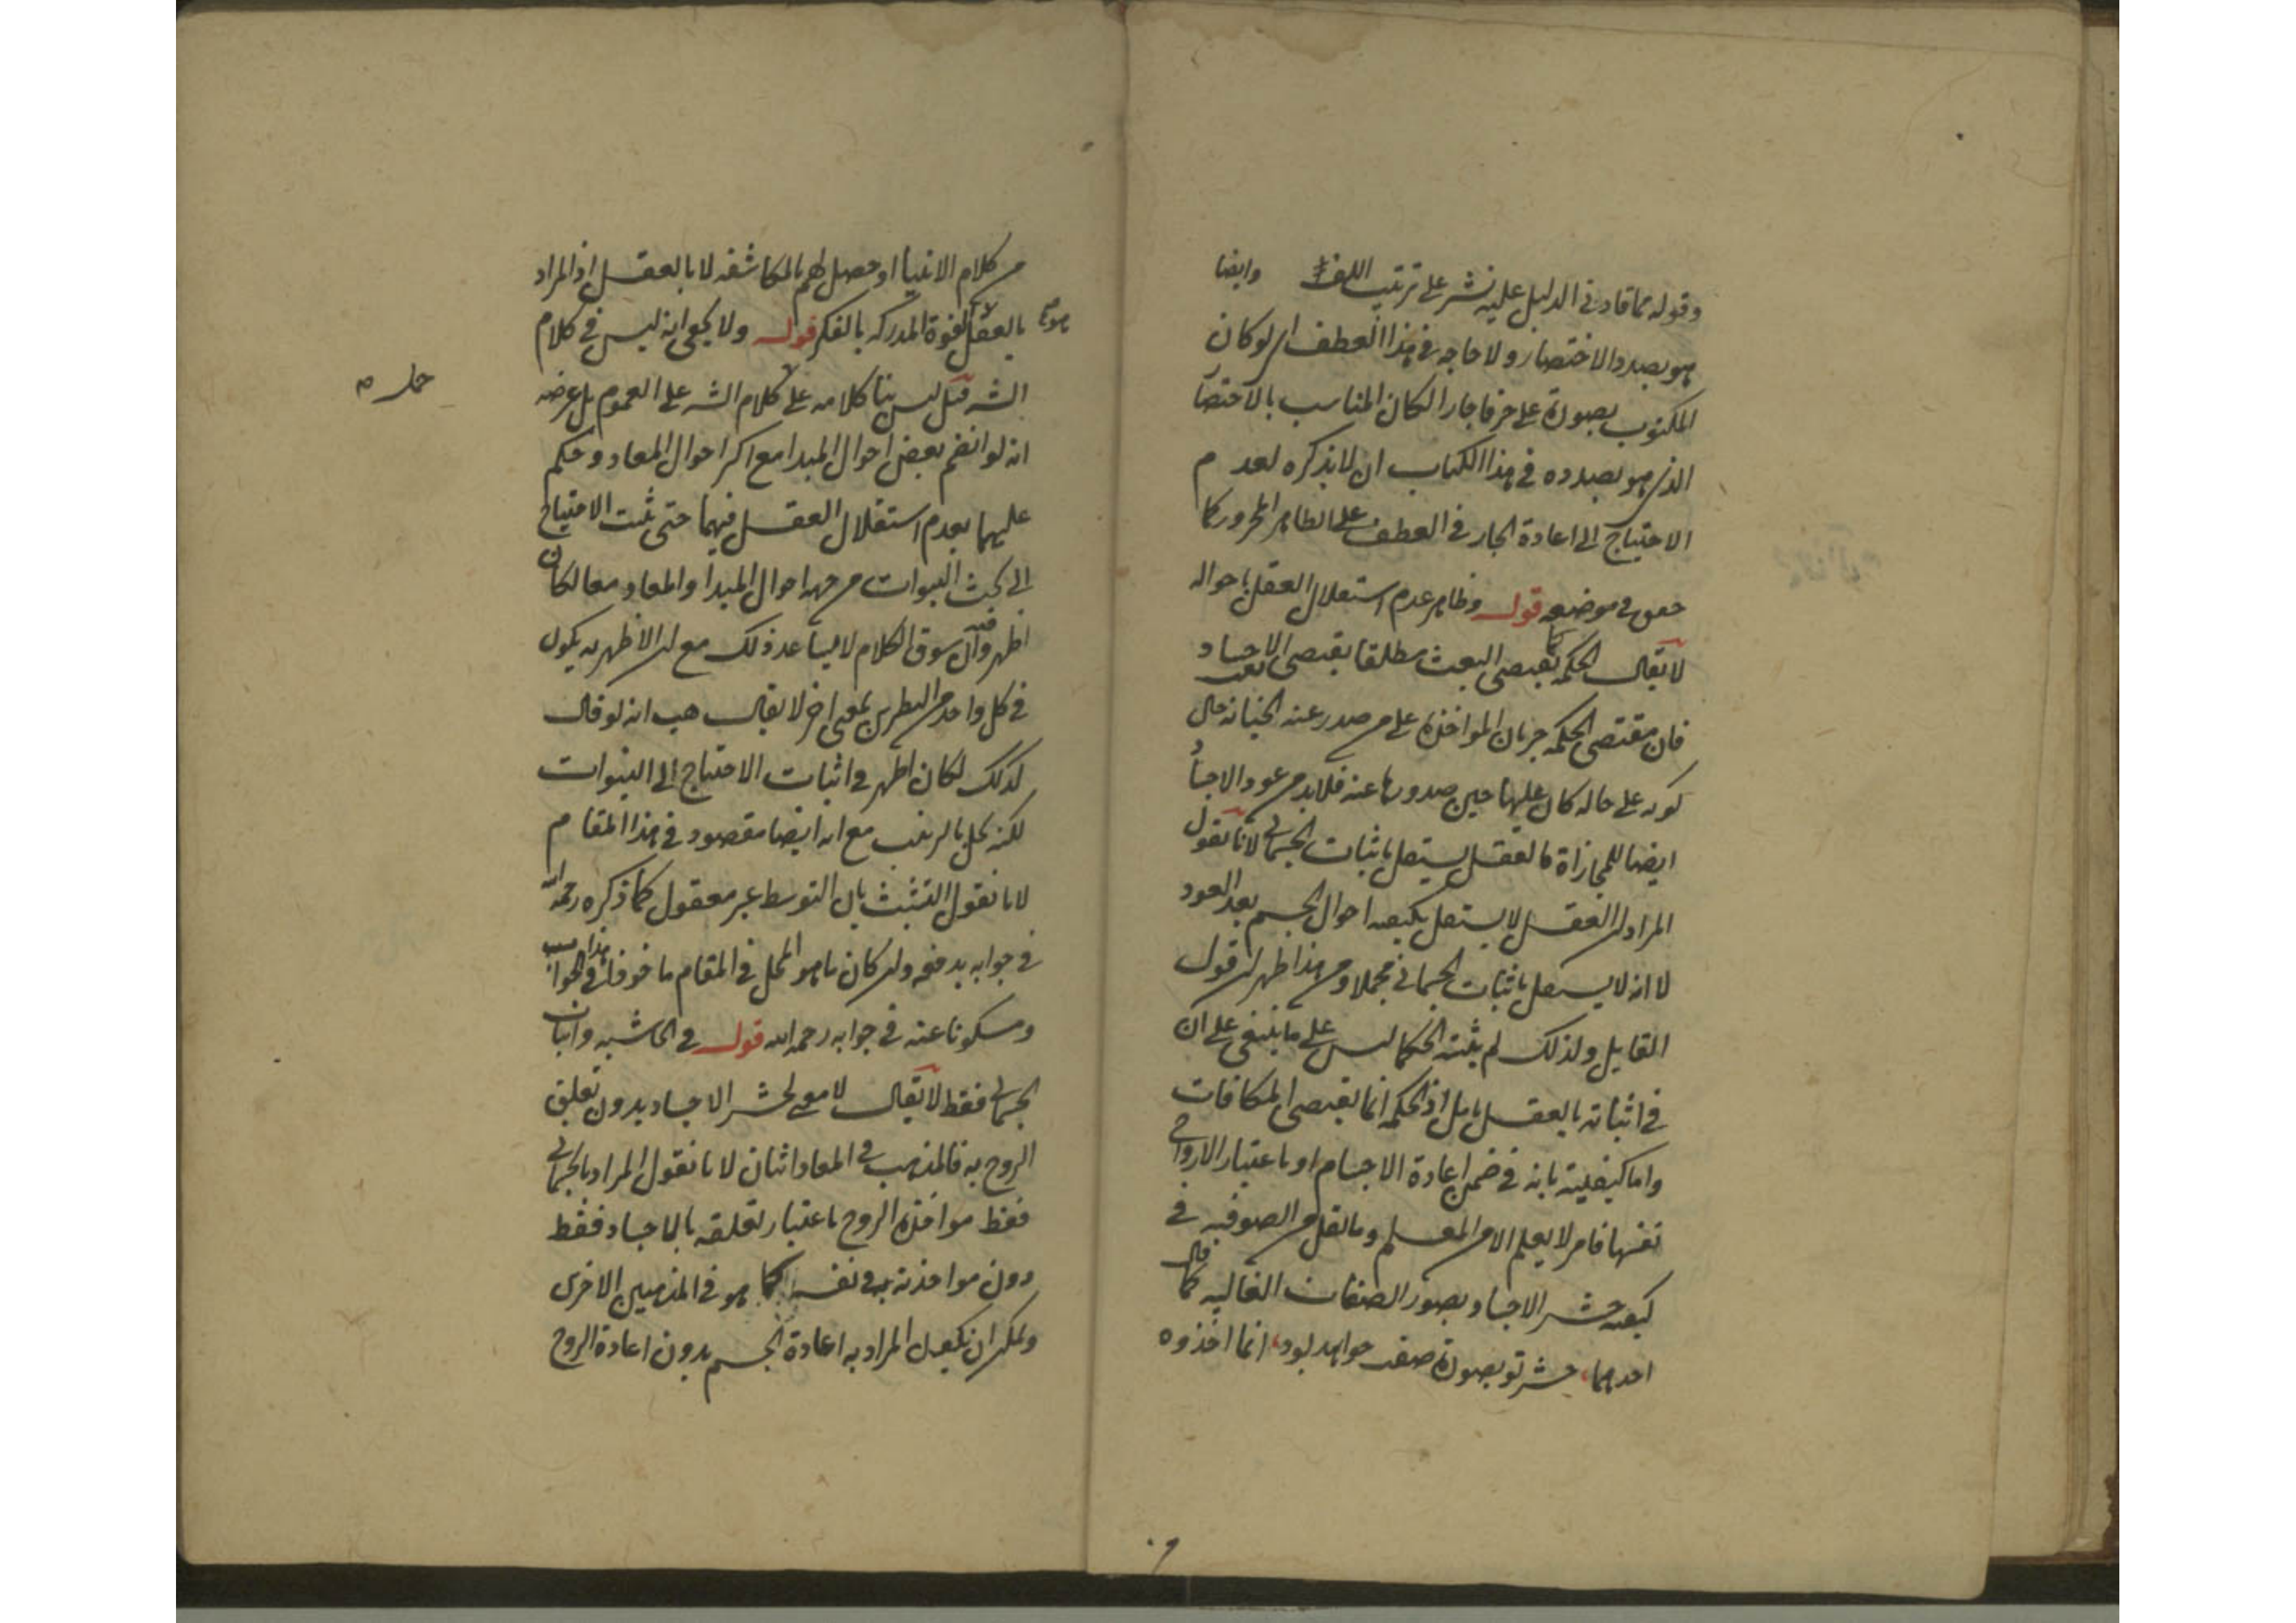 وقوله مما قاد في الدليل عليه نشر على ترتيب اللف وايضا
هو بصدد الاختصار ولا حاجه في هذا العطف اى لو كان
المكتوب بصورة على حرفا جارا لكان المناسب بالاختصار
الذى هو بصدده في هذا الكتاب ان لا يذكره لعدم
الاحتياج الى اعادة الجار في العطف على الظاهر المجرور كما
حقق في موضعه قوله وظاهر عدم استقلال العقل باحواله
لا يقال الحكمة كما تقتضى البعث مطلقا يقتضى الاجساد
فان مقتضى الحكمة جريان المواخذة على من صدر عنه الخيانة حال
كونه على حاله كان عليها حين صدورها عنه فلا بد من عود الاجساد
ايضا للمجازاة فالعقل يستقل باثبات الجسمانى لانا نقول
المراد ان العقل لا يستقل بكيفية احوال الجسم بعد العود
لا انه لا يستقل باثبات الجسمانى مجملا ومن هذا ظهر ان قول
القايل ولذلك لم يثبته الحكما ليس على ما ينبغى على ان
في اثباته بالعقل تامل اذ الحكمة انما تقتضى المكافات
واما كيفيته بانه في ضمن اعادة الاجسام او باعتبار الارواح
نفسها فامر لا يعلم الا من المعلم وما نقل من الصوفية في
كيفية حشر الاجساد بصور الصفات الغالبه كما قال
احدهما حشر تو بصورة صفت خواهد بود انما اخذوه
من كلام الانبيا او حصل لهم بالمكاشفه لا بالعقل اذ المراد
بالعقل القوة المدركه بالفكر قوله ولا يخفى انه ليس في كلام
الشه قيل ليس بنا كلامه على كلام الشه على العموم بل غرضه
حمل
انه لو انضم بعض احوال المبدا مع اكثر احوال المعاد وحكم
عليهما بعدم استقلال العقل فيهما حتى ثبت الاحتياج
الى بحث النبوات من جهة احوال المبدا والمعاد معا لكان
اظهر وفيه ان سوق الكلام لا يساعد ذلك مع ان الاظهرية يكون
في كل واحد من النظرين بمعنى اخر لا يقال هب انه لو قال
كذلك لكان اظهر في اثبات الاحتياج الى النبوات
لكنه يخل بالترتيب مع انه ايضا مقصود في هذا المقام
لانا نقول التشبث بان التوسط غير معقول كما ذكره رحمه الله
في جوابه يدفعه وان كان ما هو المخل في المقام ماخوذا في هذا الجواب
ومسكوتا عنه في جوابه رحمه الله قوله في الحاشيه واثبات
الجسمانى فقط لا يقال لا معنى لحشر الاجساد بدون تعلق
الروح به فالمذهب في المعاد اثنان لانا نقول المراد بالجسمانى
فقط مواخذة الروح باعتبار تعلقه بالاجساد فقط
دون مواخذته في نفسه كما هو في المذهبين الاخرى
ويمكن ان يكون المراد به اعادة الجسم بدون اعادة الروح